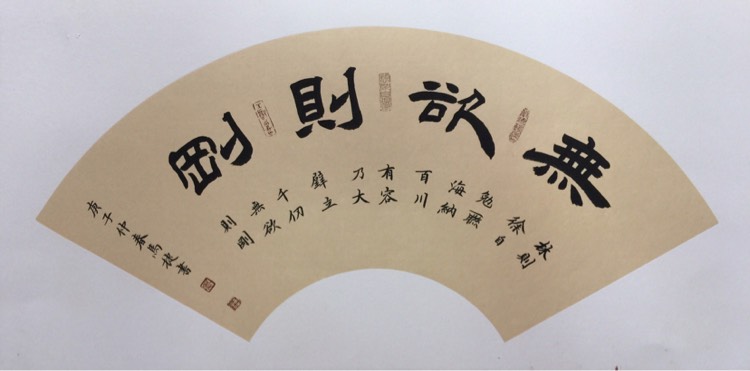 無欲則剛
林則
徐自
勉聯
海納
百川
有容
乃大
壁立
千仞
無欲
則剛
庚子仲春馬旋書